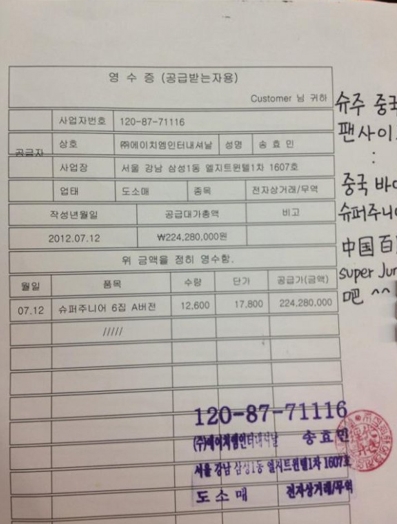 영 수 증 (공급받는자용)
Customer 님 귀하
공급자
사업자번호 120-87-71116
상호 ㈜에이치엠인터내셔날 성명 송 효 민
사업장 서울 강남 삼성1동 엘지트윈텔1차 1607호
업태 도소매 종목 전자상거래/무역
작성년월일 공급대가총액 비고
2012.07.12 ₩224,280,000원
위 금액을 정히 영수함.
월일 품목 수량 단가 공급가(금액)
07.12 슈퍼주니어 6집 A버전 12,600 17,800 224,280,000
/////
120-87-71116
(주)에이치엠인터내셔날 송효민
서울 강남 삼성1동 엘지트윈텔1차 1607호
도 소 매 전자상거래/무역
슈주 중국
팬사이
:
중국 바이
슈퍼주니어
中国百
super Jun
吧 ^^